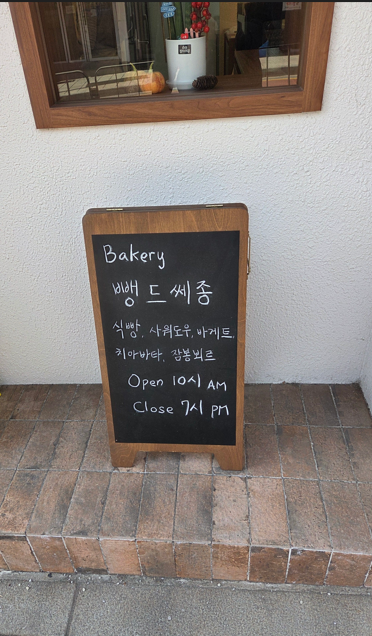 Bakery
빵 드 쎄종
식빵, 사워도우, 바게트,
치아바타, 잠봉뵈르
Open 10시 AM
Close 7시 PM